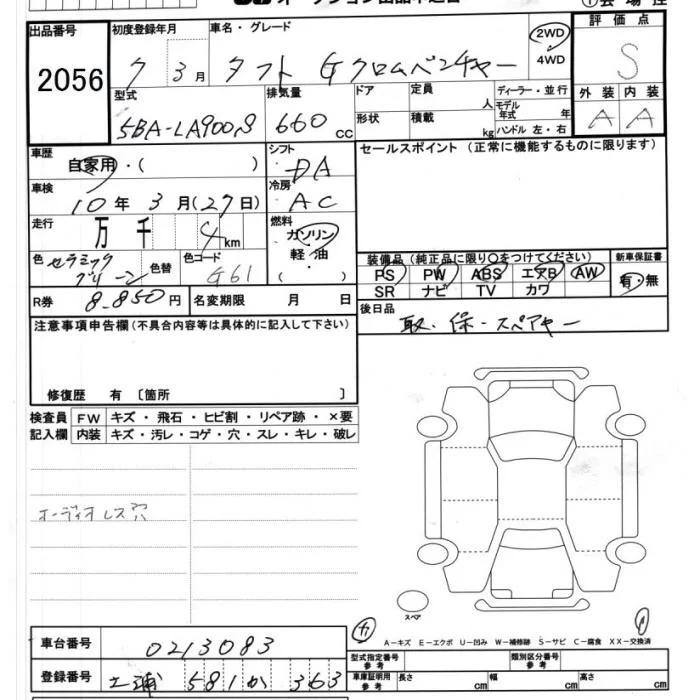 出品番号
2056
初度登録年月
7 3月
車名・グレード
タフト Gクロムベンチャー
2WD
4WD
評価点
S
外装 内装
A A
型式
5BA-LA900S
排気量
660 cc
ドア
形状
定員 人
積載 kg
ディーラー・並行
モデル年式 年
ハンドル 左・右
車歴
自家用・( )
シフト
DA
車検
10年 3月(27日)
冷房
AC
走行
万 千 4 km
燃料
ガソリン
軽・油
( )
色 セラミックグリーン
色替
色コード
G61
R券 8,850円
名変期限 月 日
セールスポイント (正常に機能するものに限ります)
装備品(純正品に限り○をつけてください)
新車保証書
PS PW ABS エアB AW
SR ナビ TV カワ
有・無
後日品
取・保・スペアキー
注意事項申告欄(不具合内容等は具体的に記入して下さい)
修復歴 有 〔箇所 〕
検査員記入欄
FW キズ・飛石・ヒビ割・リペア跡・×要
内装 キズ・汚レ・コゲ・穴・スレ・キレ・破レ
オーディオレス穴
スペア
A-キズ E-エクボ U-凹み W-補修跡 S-サビ C-腐食 XX-交換済
車台番号
0213083
登録番号
土浦 581 か 363
型式指定番号 参考
類別区分番号 参考
車庫証明用 参考
長さ cm
幅 cm
高さ cm